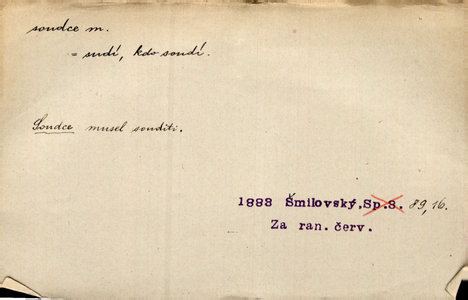 soudce m.
= sudí, kdo soudí.
Soudce musel souditi.
1883 Šmilovský, Sp.8. 89,16.
Za ran. červ.